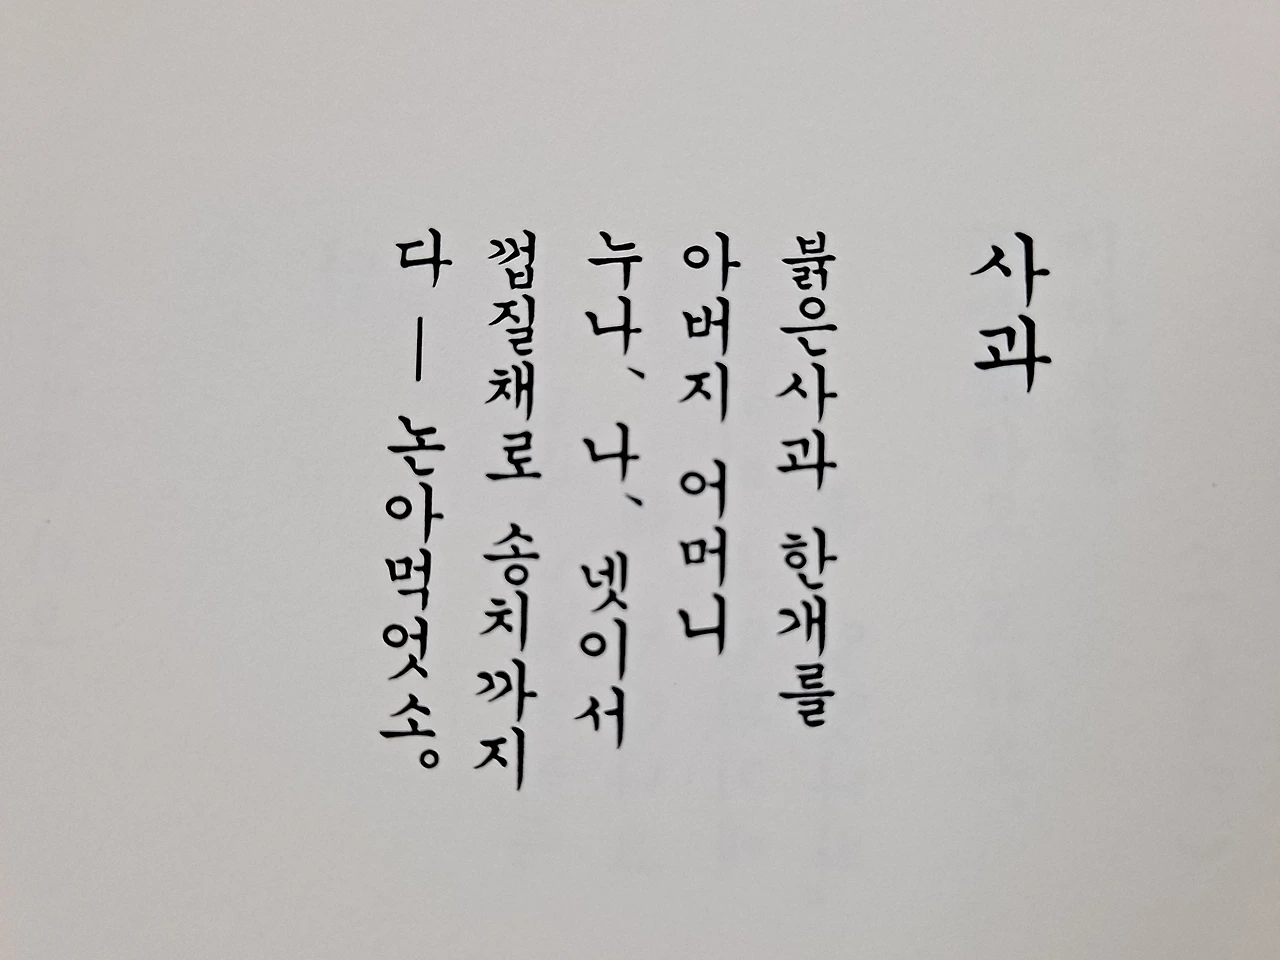 사과
붉은사과 한개를
아버지 어머니
누나、나、넷이서
껍질채로 송치까지
다ㅡ논아먹엇소。